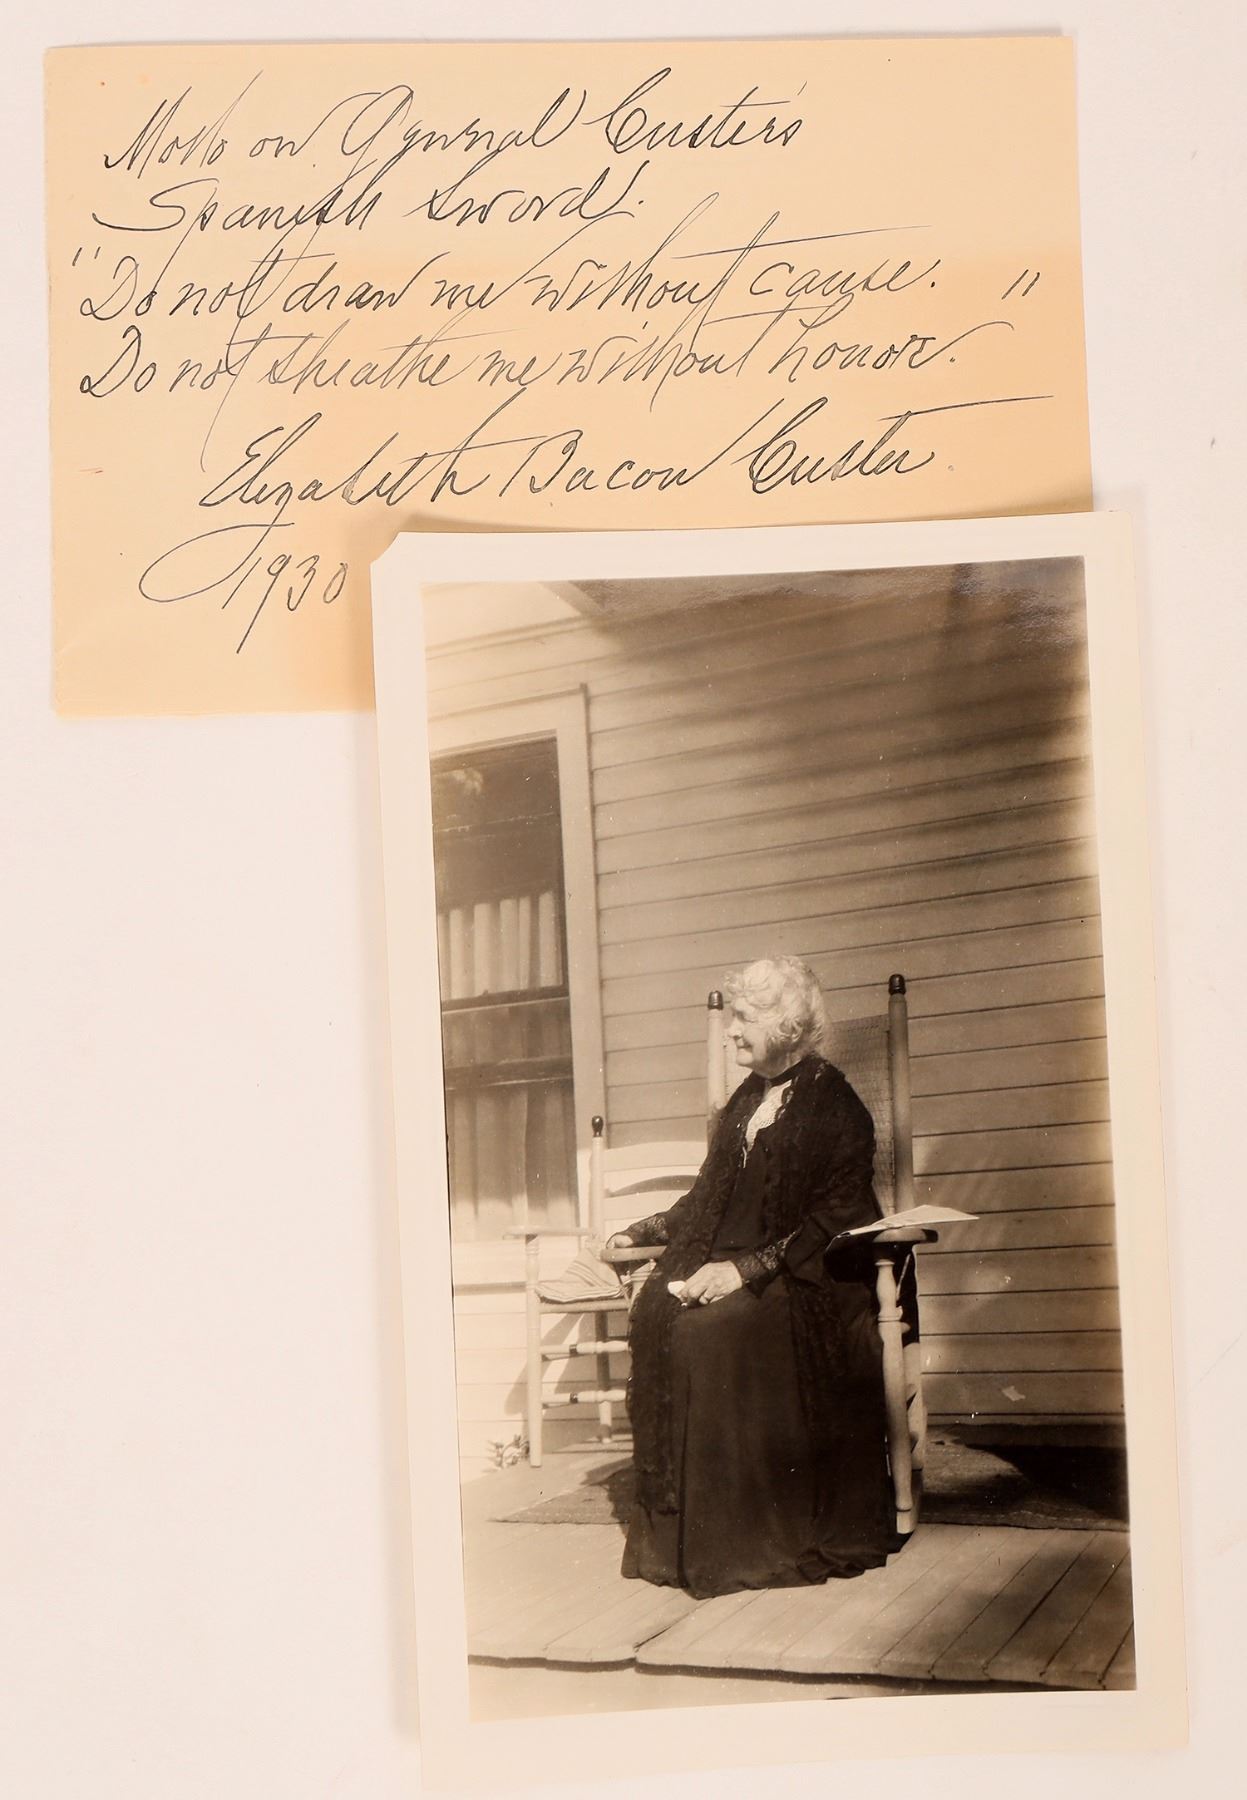 Motto on General Custer's
Spanish Sword.
"Do not draw me without cause.
Do not sheathe me without honor."
Elizabeth Bacon Custer.
1930